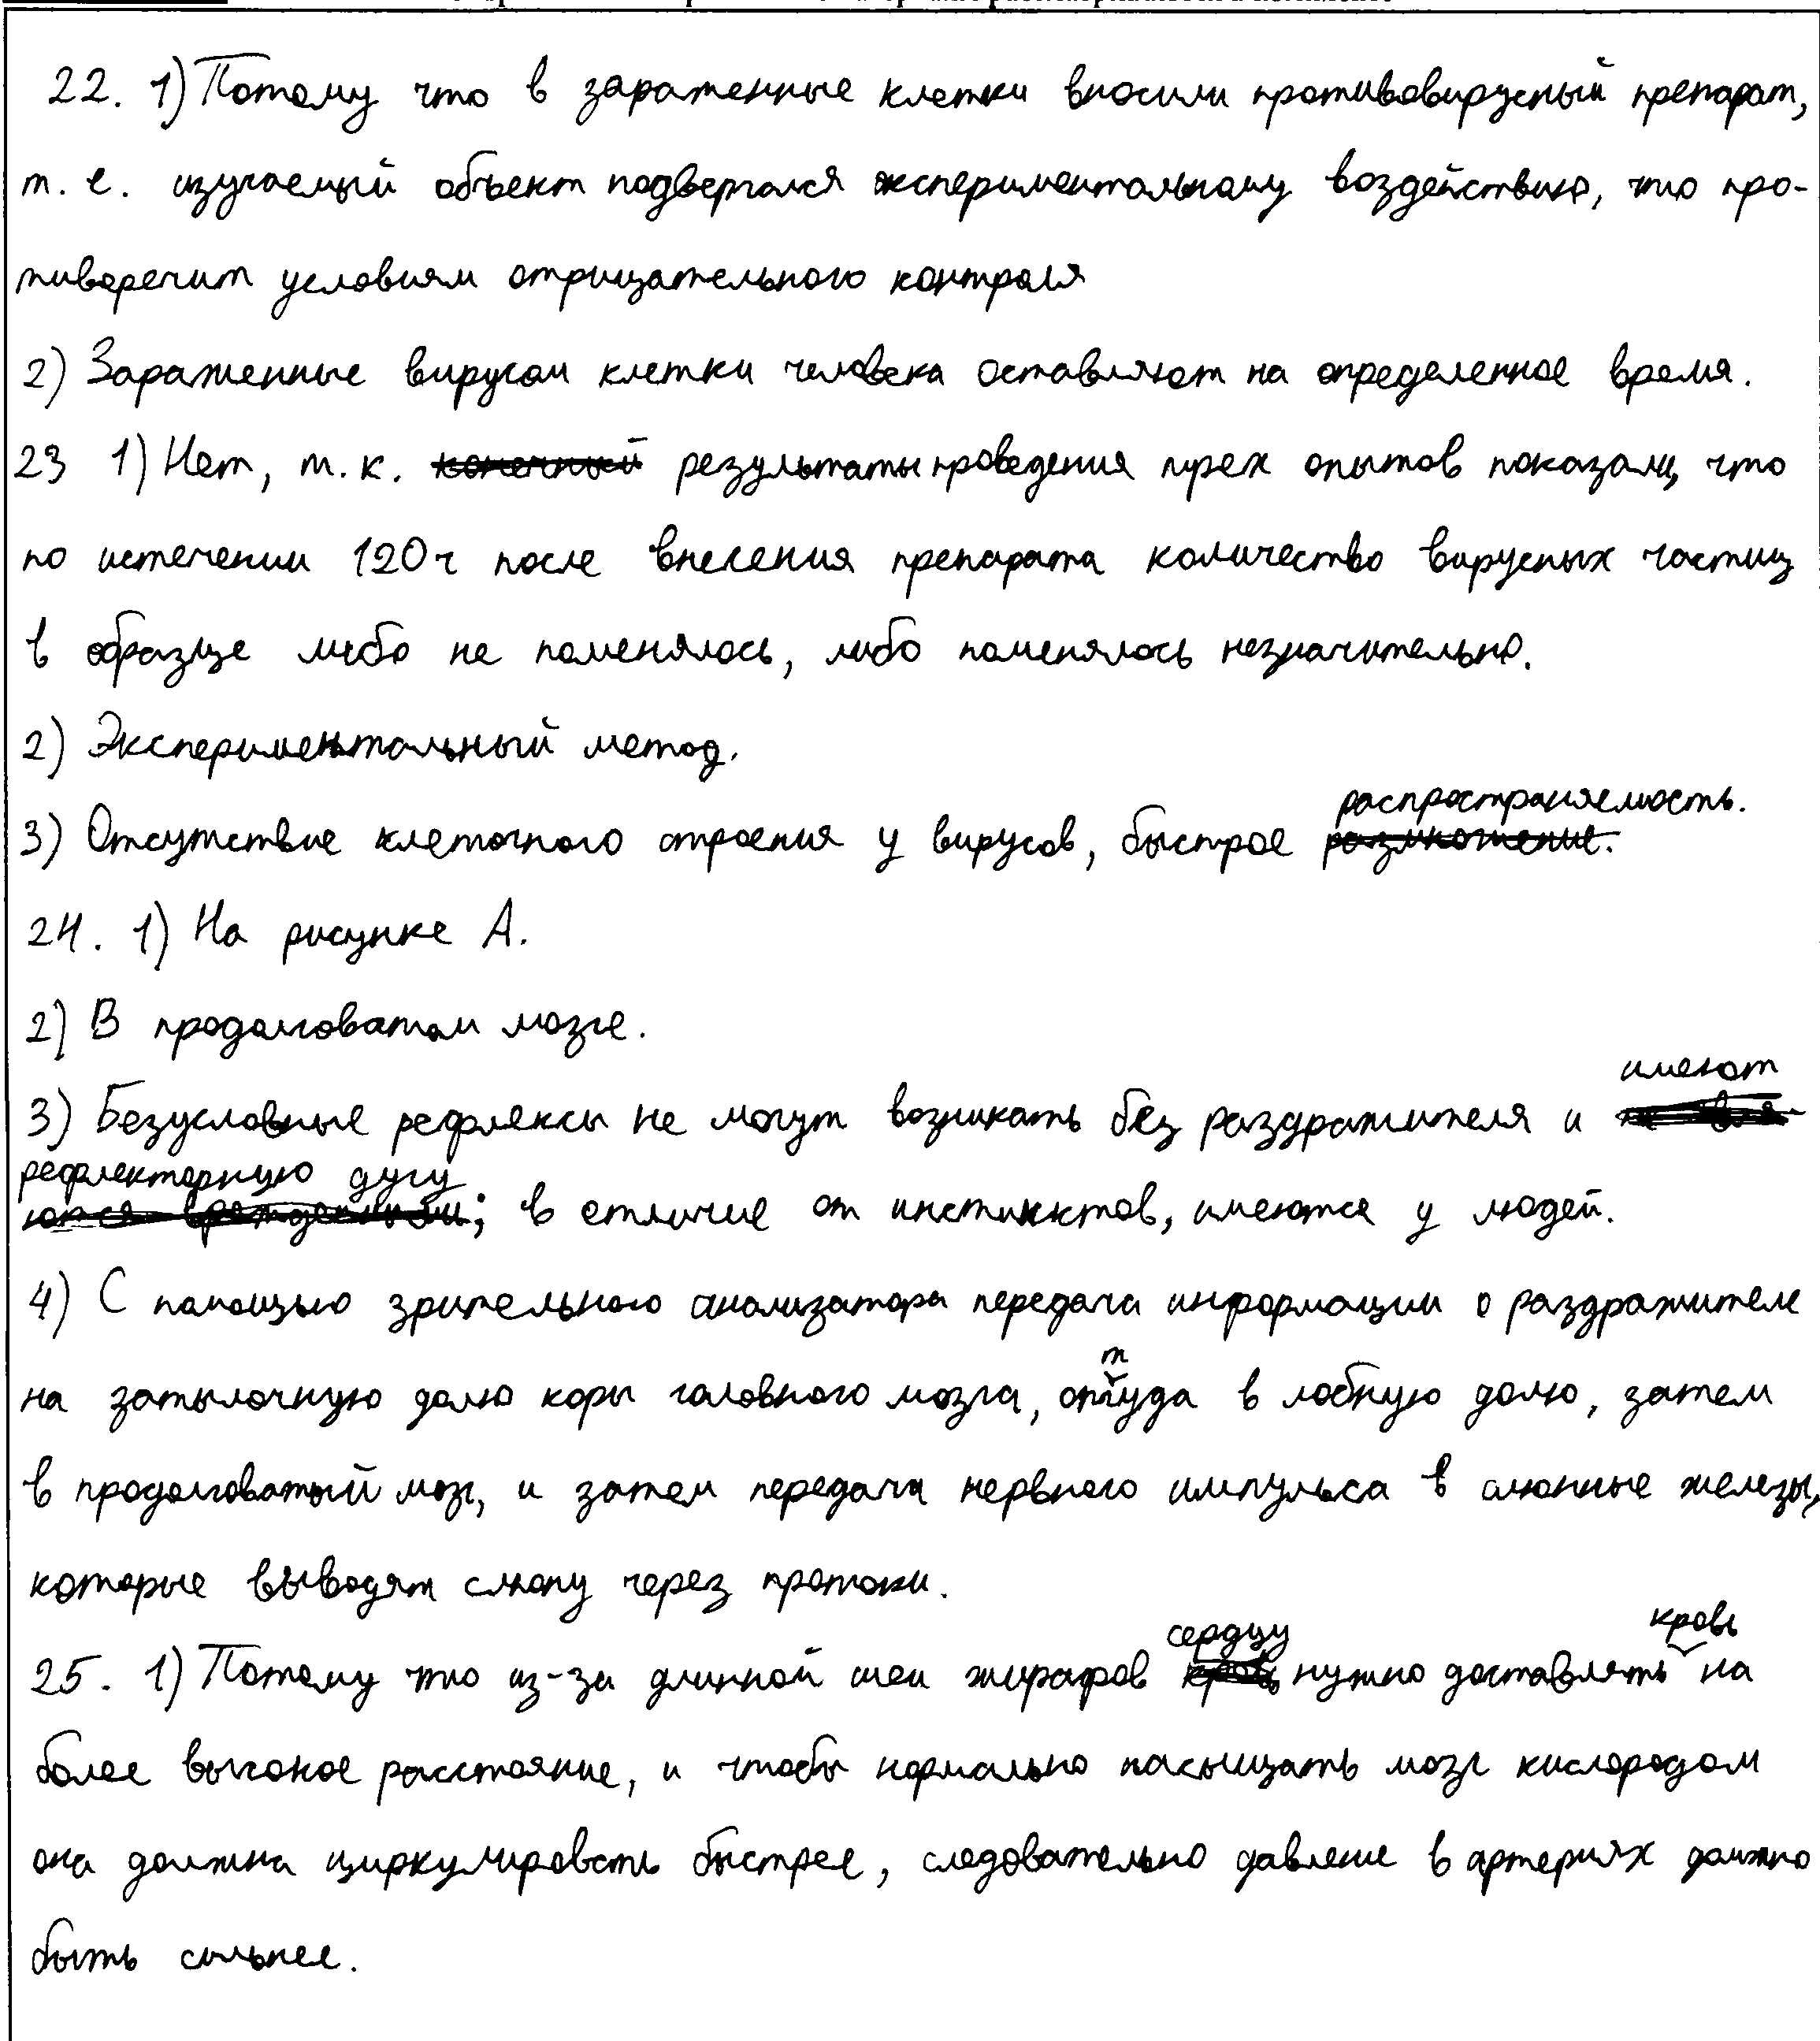 22. 1) Потому что в зараженные клетки вносили противовирусный препарат,
т. е. изучаемый объект подвергался экспериментальному воздействию, что про-
тиворечит условиям отрицательного контроля
2) Зараженные вирусом клетки человека оставляют на определенное время.
23 1) Нет, т. к. конечный результаты проведения трех опытов показали, что
по истечении 120 ч после внесения препарата количество вирусных частиц
в образце либо не поменялось, либо поменялось незначительно.
2) Экспериментальный метод.
распространяемость.
3) Отсутствие клеточного строения у вирусов, быстрое размножение.
24. 1) На рисунке А.
2) В продолговатом мозге.
имеют
3) Безусловные рефлексы не могут возникать без раздражителя и
рефлекторную дугу
ются врожденными; в отличие от инстинктов, имеются у людей.
4) С помощью зрительного анализатора передача информации о раздражителе
на затылочную долю коры головного мозга, оттуда в лобную долю, затем
в продолговатый мозг, и затем передача нервного импульса в слюнные железы,
которые выводят слюну через протоки.
сердцу кровь
25. 1) Потому что из-за длинной шеи жирафов кровь нужно доставлять на
более высокое расстояние, и чтобы нормально насыщать мозг кислородом
она должна циркулировать быстрее, следовательно давление в артериях должно
быть сильнее.